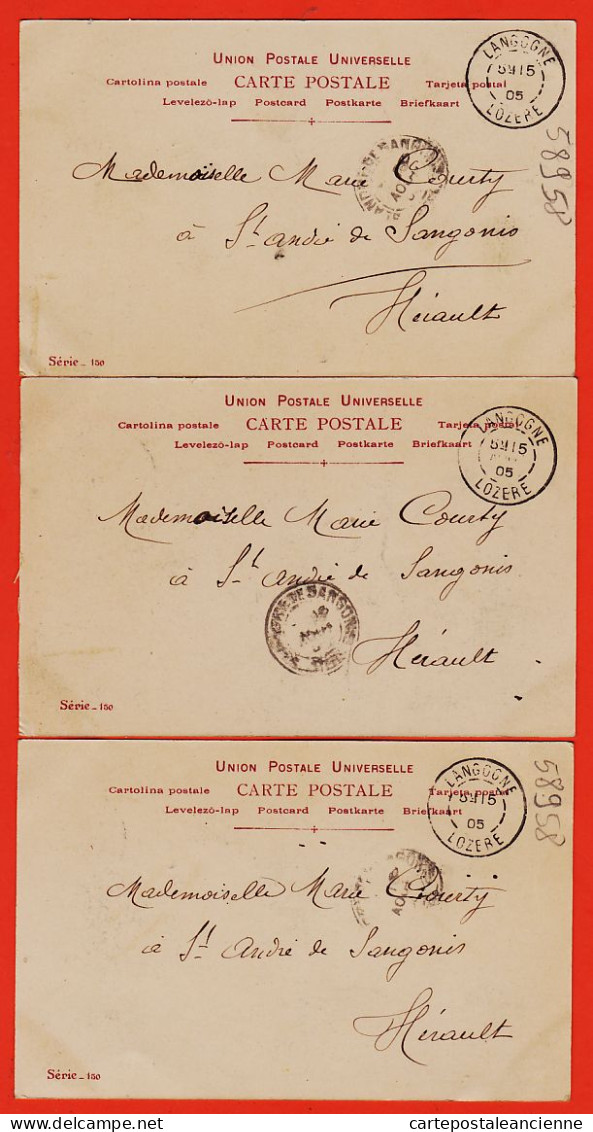 UNION POSTALE UNIVERSELLE
Cartolina postale CARTE POSTALE Tarjeta postal
Levelező-lap Postcard Postkarte Briefkaart
LANGOGNE
15
05
LOZERE
58958
Mademoiselle Marie Courty
à St André de Sangonis
Hérault
Série_150
UNION POSTALE UNIVERSELLE
Cartolina postale CARTE POSTALE Tarjeta postal
Levelező-lap Postcard Postkarte Briefkaart
LANGOGNE
15
05
LOZERE
Mademoiselle Marie Courty
à St André de Sangonis
DE SANGONIS
Hérault
Série_150
UNION POSTALE UNIVERSELLE
Cartolina postale CARTE POSTALE Tarjeta postal
Levelező-lap Postcard Postkarte Briefkaart
LANGOGNE
15
05
LOZERE
58958
Mademoiselle Marie Courty
à St André de Sangonis
Hérault
Série_150
cartepostaleancienne